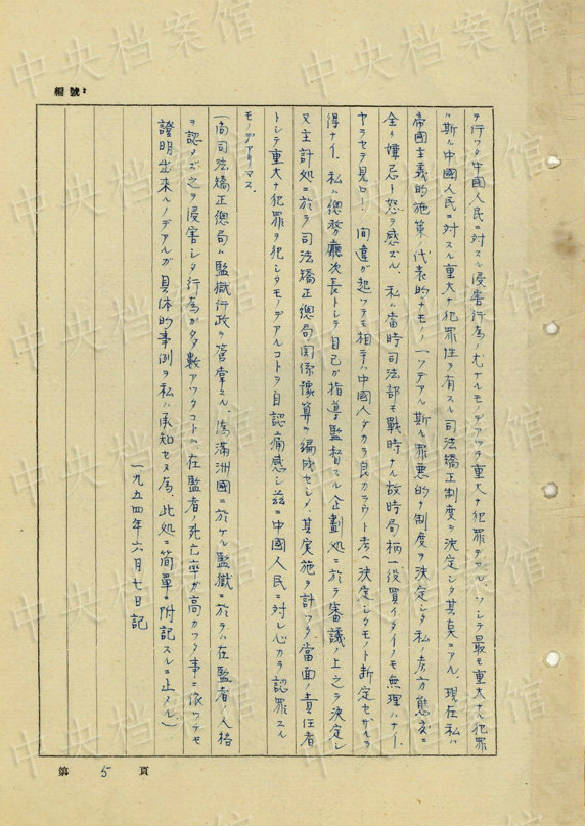 編號:
ヲ行ツタ中國人民ニ対スル侵害行為ノ尤ナルモノデアツテ重大ナ犯罪デアル、ソシテ最モ重大ナル犯罪
ハ斯ル中國人民ニ対スル重大ナ犯罪性ヲ有スル司法矯正制度ヲ決定シタ其奌ニアル、現在私ハ
帝國主義的施策ノ代表的ナモノノ一ツデアル斯ル罪悪的ナ制度ヲ決定シタ私ノ考方態度ニ
全ク嫌忌ト怒ヲ感ズル、私ハ當時司法部モ戰時ナル故時局柄一役買イタイノモ無理ハナイ、
ヤラセテ見ロ! 間違ガ起ツテモ相手ハ中國人ダカラ良カラウト考ヘ決定シタモノト断定セザルヲ
得ナイ、私ハ總務廳次長トシテ自己ガ指導監督スル企劃処ニ於テ審議ノ上之ヲ決定シ
又主計処ニ於テ司法矯正總局関係豫算ヲ編成セシメ、其実施ヲ計ツタ當面ノ責任者
トシテ重大ナ犯罪ヲ犯シタモノデアルコトヲ自認痛感シ茲ニ中國人民ニ対シ心カラ認罪スル
モノデアリマス、
(尚司法矯正總局ハ監獄行政ヲ管掌スル、偽滿洲國ニ於ケル監獄ニ於テハ在監者ノ人格
ヲ認メズ之ヲ侵害シタ行為ガ多数アツタコトハ在監者ノ死亡率ガ高カツタ事ニ依ツテモ
證明出来ルノデアルガ具体的事例ヲ私ハ承知セヌ為、此処ニ簡單ニ附記スルニ止メル)
一九五四年六月七日記
第 5 頁
中央档案馆